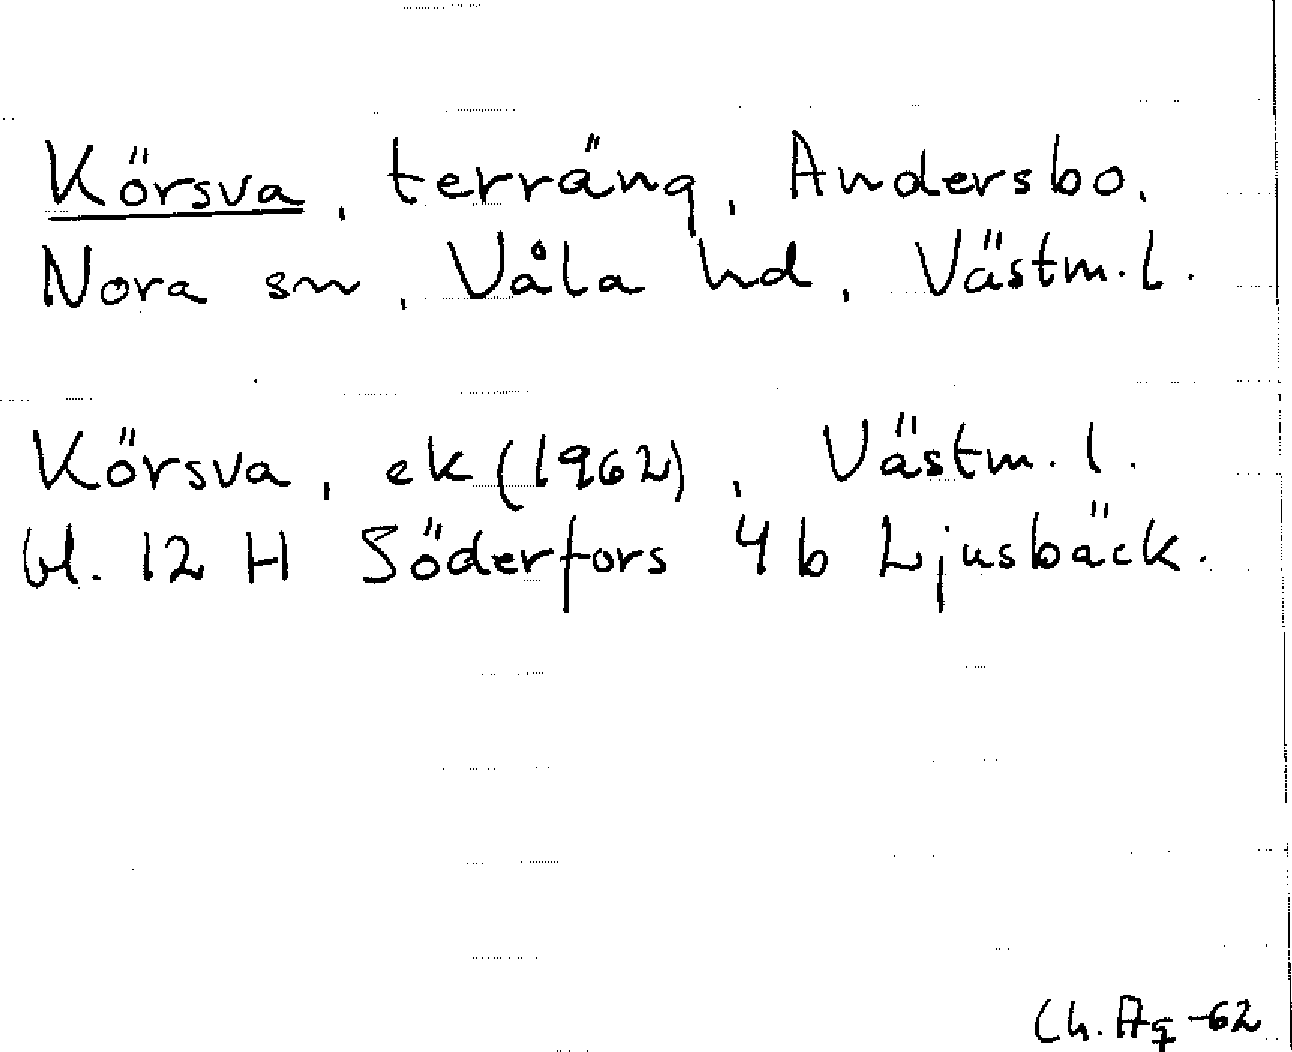 Körsva, terräng, Andersbo,
Nora sn, Våla hd, Västm. l.
Körsva, ek (1962), Västm. l.
bl. 12 H Söderfors 4 b Ljusbäck.
Ch. Ag -62